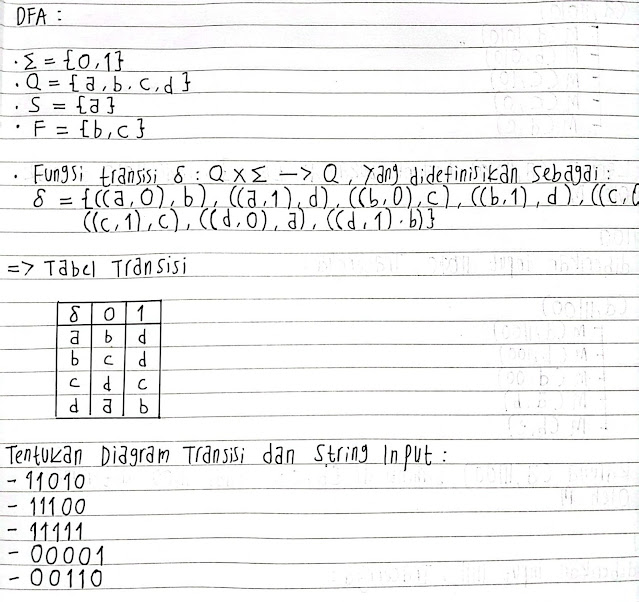 DFA :
· Σ = {0,1}
· Q = {a,b.c,d}
· S = {a}
· F = {b,c}
· Fungsi transisi δ : Q X Σ –> Q, yang didefinisikan sebagai :
δ = {((a,0),b), ((a,1),d), ((b,0),c), ((b,1),d), ((c,0
((c,1),c), ((d,0),a), ((d,1).b)}
=> Tabel Transisi
δ 0 1
a b d
b c d
c d c
d a b
Tentukan Diagram Transisi dan String Input :
- 11010
- 11100
- 11111
- 00001
- 00110